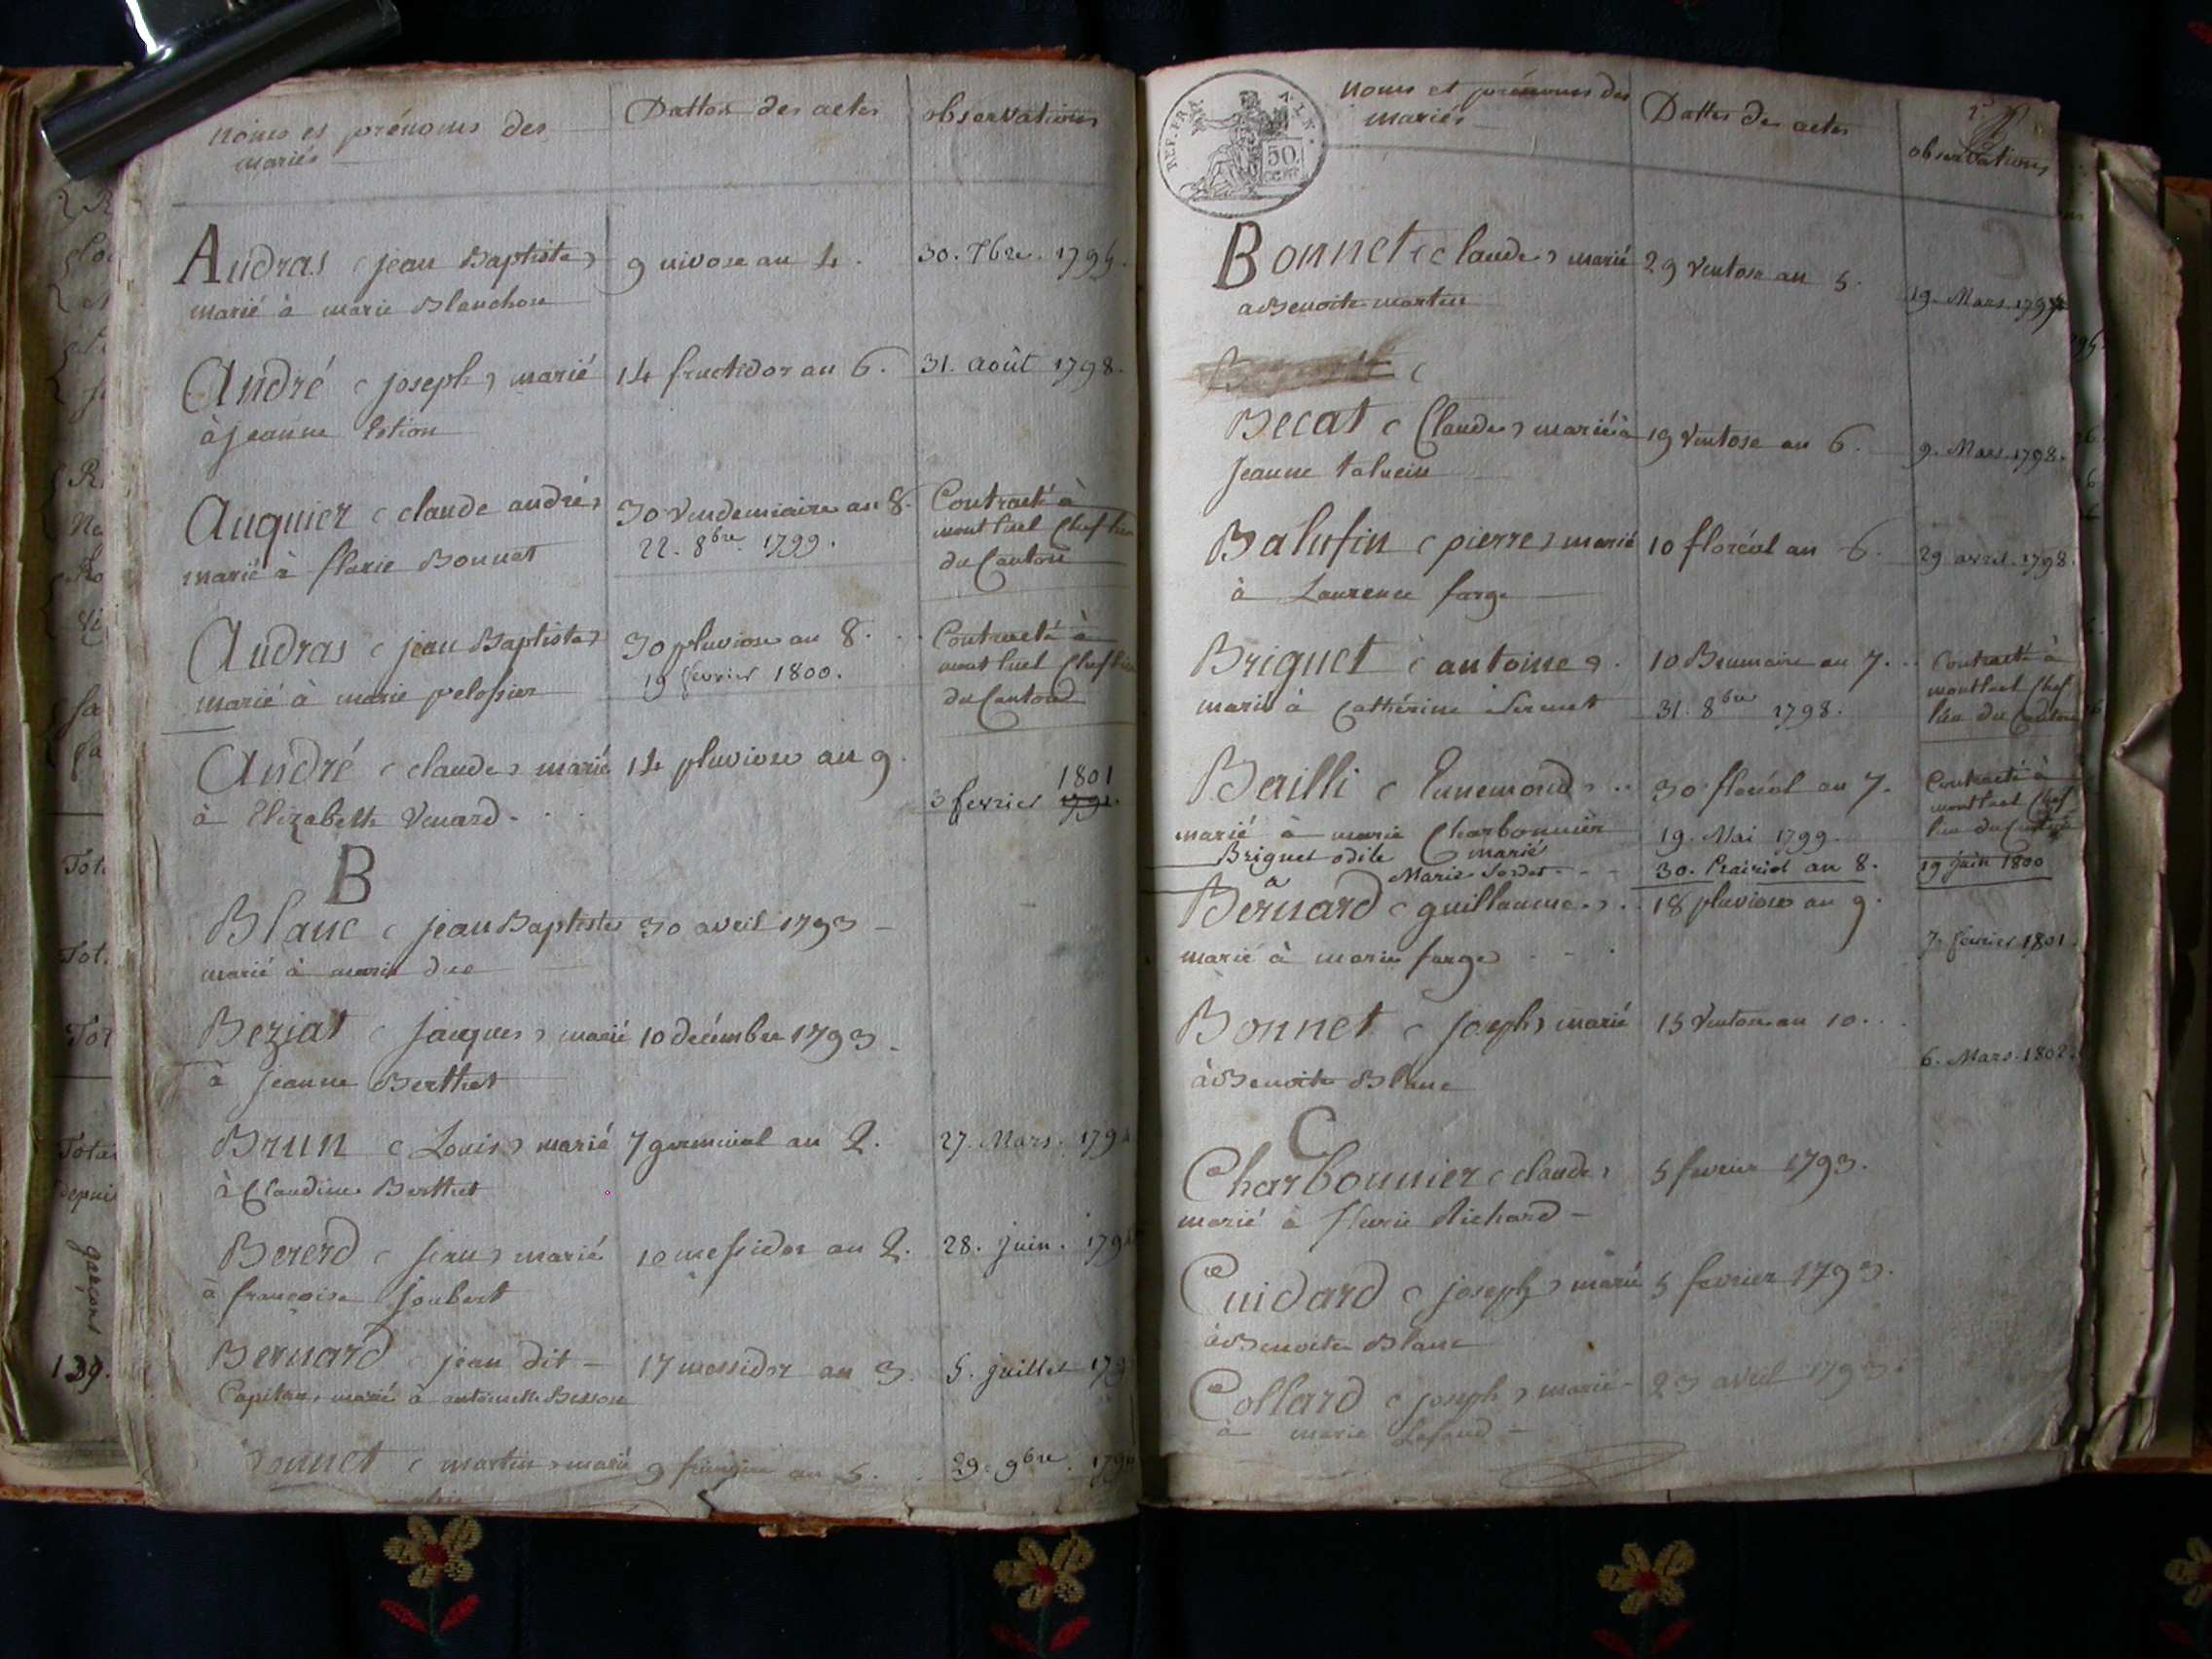 noms et prénoms des
mariés
Dattes des actes
observations
Audras (jean Baptiste)
marié à marie Blanchon
9 nivose an 4.
30. Xbre. 1795.
André (joseph) marié
à jeanne
14 fructidor an 6.
31. août 1798.
Auguier (claude andré)
marié à flarie Bonnet
30 Vendemiaire an 8.
22. 8bre 1799.
Contracté à
montluel Chef lieu
du Canton
Audras (jean Baptiste)
marié à marie pelossier
30 pluviose an 8.
19 fevrier 1800.
Contracté à
montluel Chef lieu
du Canton
André (claude) marié
à Elizabeth Venard
14 pluviose an 9.
1801
3 fevrier
B
Blanc (jean Baptiste
marié à marie duc
30 avril 1793
Beziat (jacques) marié
à jeanne Berthet
10 decémbre 1793
Brun (Louis) marié
à Claudine Berthet
7 germinal an 2.
27. Mars. 179
Bererd (jean) marié
à francoise joubert
10 messidor an 2.
28. juin. 179
Bernard (jean dit
Capitan, marié à antoinette Besson
17 messidor an 3.
5. juillet 179
Bonnet (martin) marié
9 frimaire an 5.
29. 9bre. 179
noms et prénoms des
mariés
Dattes des actes
observations
REP. FRA.
AIN.
50.
CENT.
Bonnet (claude) marié
a Benoite martin
29 Ventose an 5.
19. Mars. 1797
Becat (Claude) marié à
jeanne taluein
19 Ventose an 6.
9. Mars. 1798.
Balufin (pierre) marié
à Laurence farge
10 floréal an 6.
29 avril. 1798.
Briguet (antoine).
marié à Cathérine
10 Brumaire an 7.
31. 8bre 1798.
Contracté à
montluel Chef
lieu du Canton
Bailli (Ennemond)
marié à marie Charbonnier
30 floréal an 7.
19. Mai 1799.
Contracté à
montluel Chef
lieu du Canton
Briguet odile marié
a Marie
30. Prairial an 8.
19 juin 1800
Bernard (guillaume)
marié à marie farge
18 pluviose an 9.
7. fevrier 1801.
Bonnet (joseph) marié
à Benoite Blanc
15 Ventose an 10.
6. Mars. 1802.
C
Charbonnier (claude)
marié à fleurie Richard
5 fevrier 1793.
Cuidard (joseph) marié
à Benoite Blanc
5 fevrier 1793.
Collard (joseph) marié
à marie Lafond
23 avril 1793.
Tot
Tot.
Tot
Total
depuis
garçons
139.